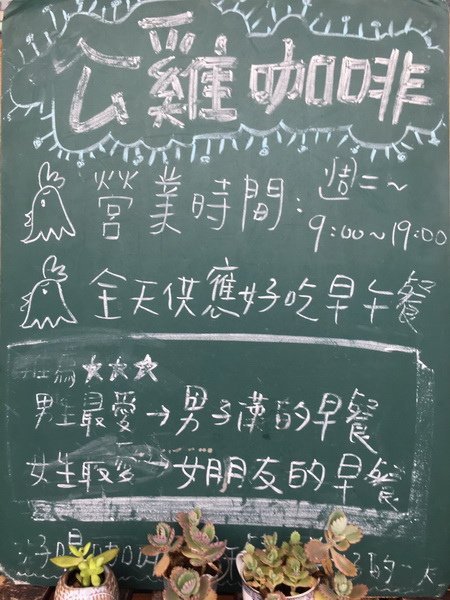 公雞咖啡
營業時間:週二~
9:00~19:00
全天供應好吃早午餐
男生最愛→男子漢的早餐
女生最愛→女朋友的早餐
的一天